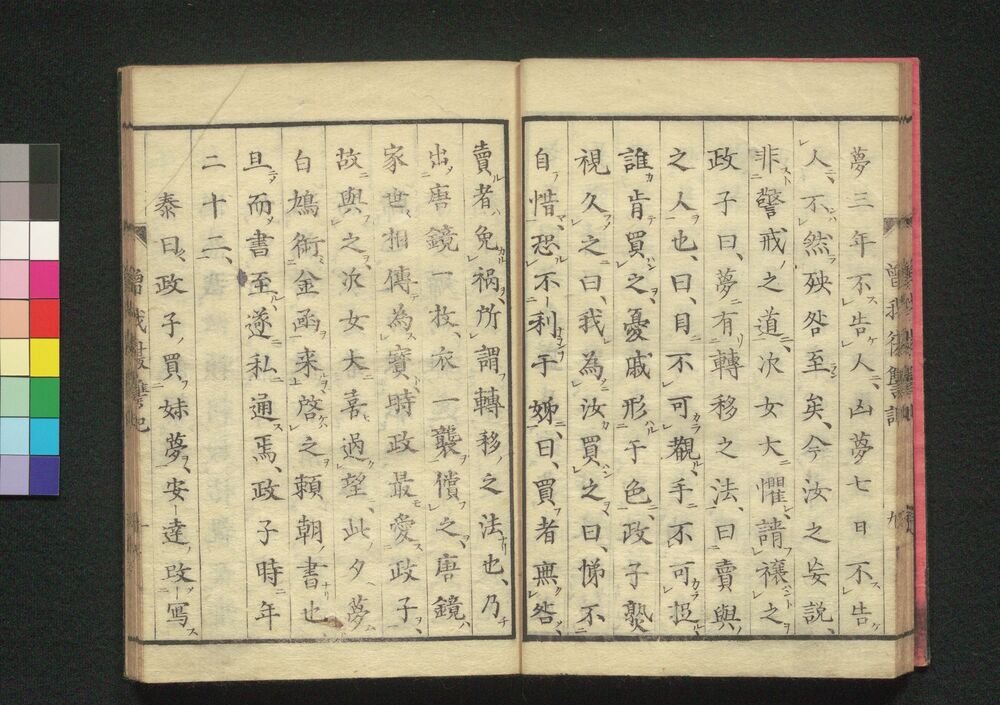 夢三年不告人、凶夢七日不告
人、不然殃咎至矣、今汝之妄説、
非警戒之道、次女大懼、請禳之
政子曰、夢有轉移之法、曰賣與
之人也、曰、目不可觀、手不可捉
誰肯買之、憂戚形于色、政子熟
視久之曰、我為汝買之、曰、悌不
自惜、恐不利于姊、曰、買者無咎、
賣者免禍、所謂轉移之法也、乃
出唐鏡一枚、衣一襲償之、唐鏡
家世相傳為寶、時政最愛政子、
故與之、次女大喜過望、此夕夢
白鳩銜金函来、啓之頼朝書也
旦而書至、遂私通焉、政子時年
二十二、
泰曰、政子買妹夢、安達改写